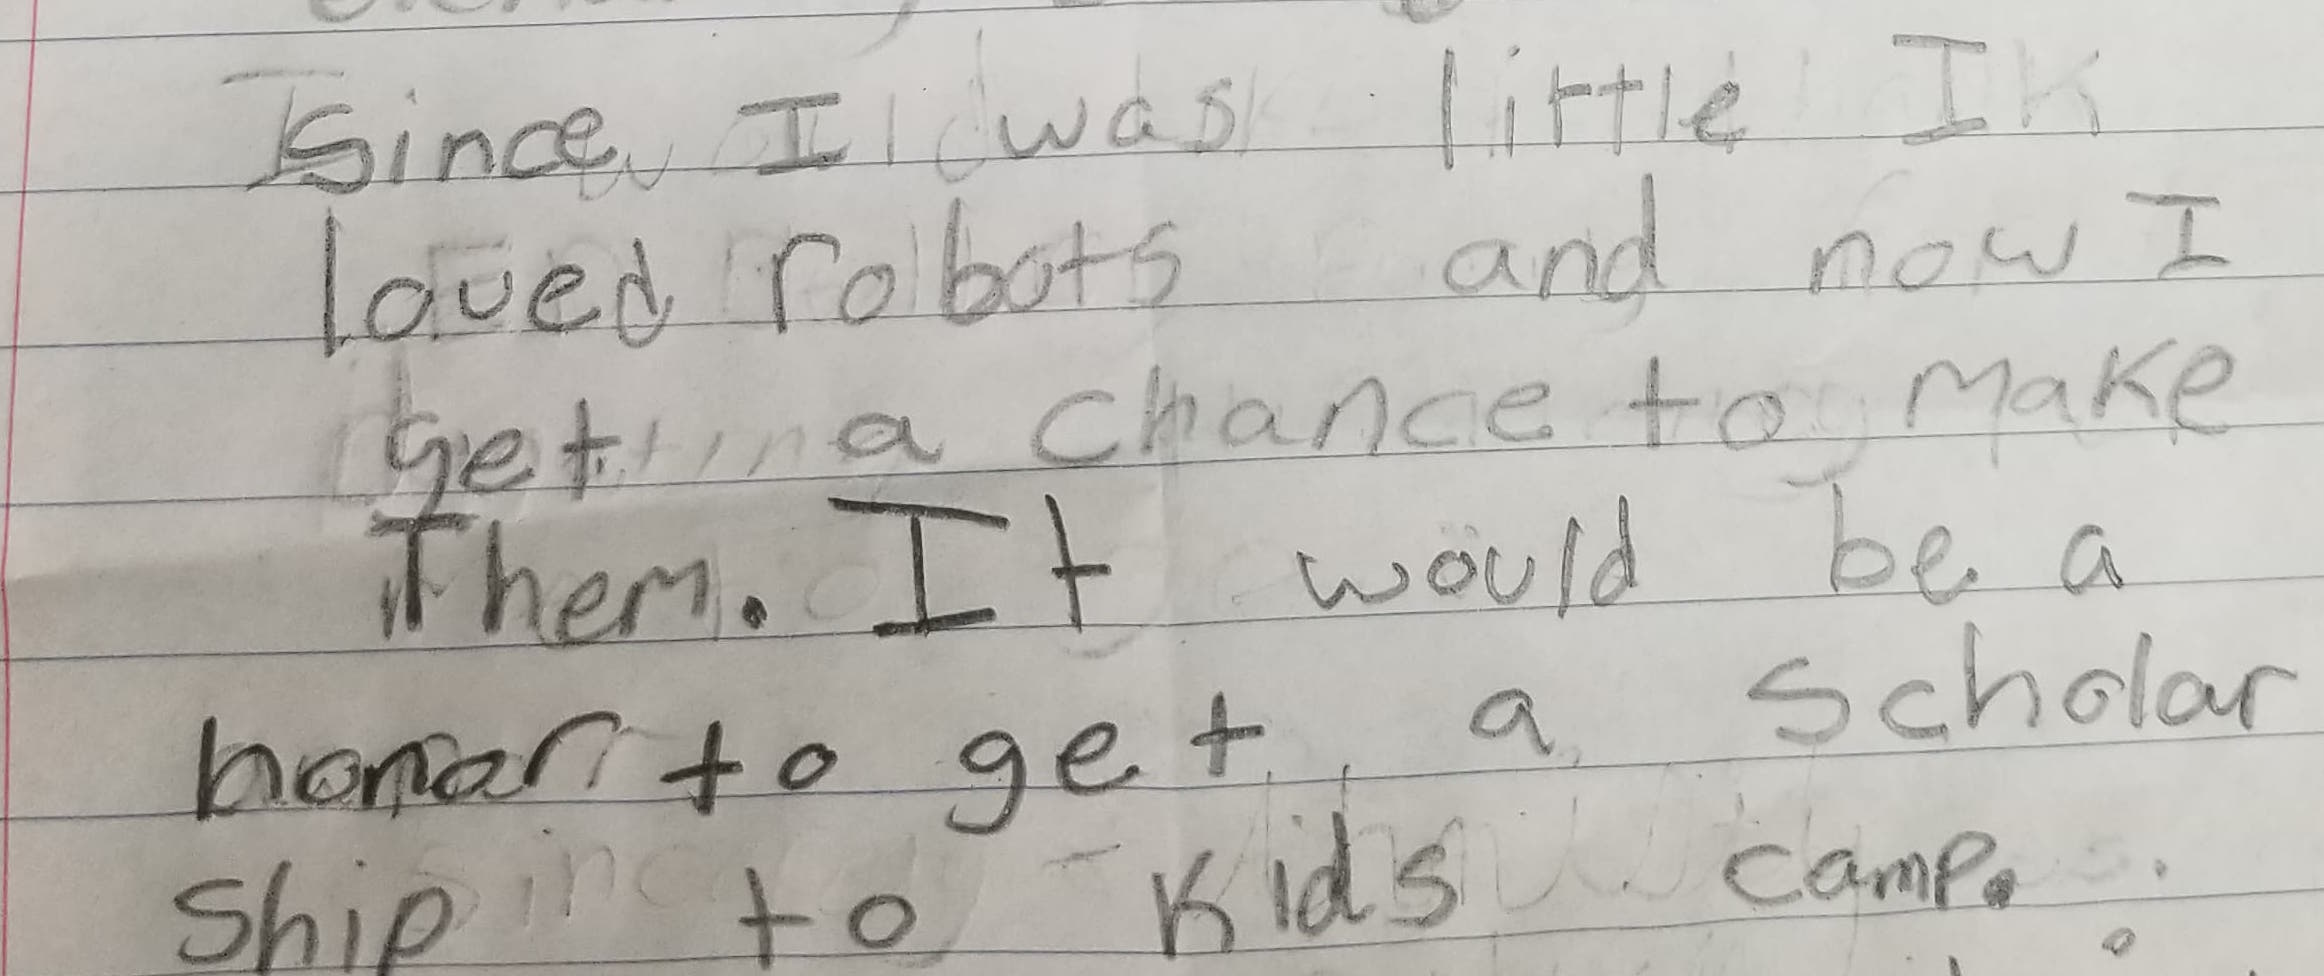 Since I was little I
loved robots and now I
get a chance to make
Them. It would be a
honor to get a scholar
Ship to Kids camp.